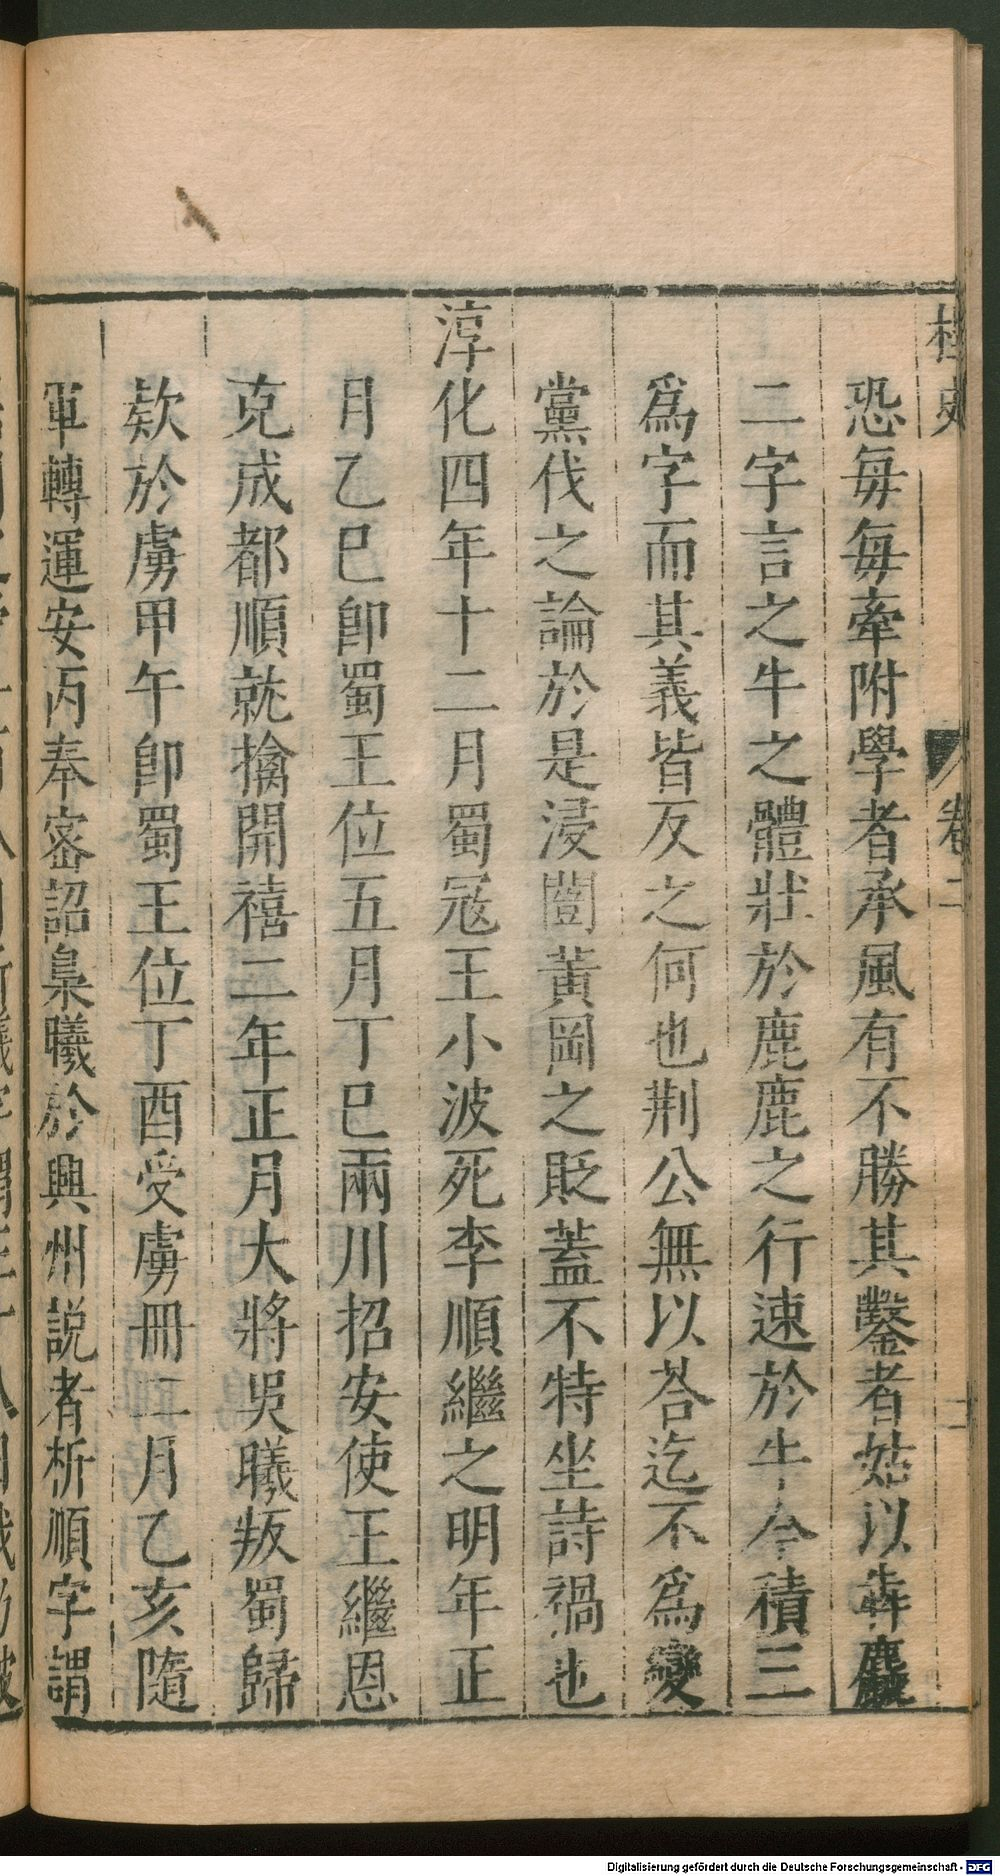 桯史
卷二
二
恐毎毎牽附學者承風有不勝其鑿者姑以犇麤
二字言之牛之體壯於鹿鹿之行速於牛今積三
爲字而其義皆反之何也荆公無以荅迄不爲變
黨伐之論於是浸闓黃岡之貶蓋不特坐詩禍也
淳化四年十二月蜀冦王小波死李順繼之明年正
月乙巳卽蜀王位五月丁巳兩川招安使王繼恩
克成都順就擒開禧二年正月大將吳曦叛蜀歸
欵於虜甲午卽蜀王位丁酉受虜冊二月乙亥隨
軍轉運安丙奉宻詔梟曦於興州説者析順字謂
Digitalisierung gefördert durch die Deutsche Forschungsgemeinschaft - DFG